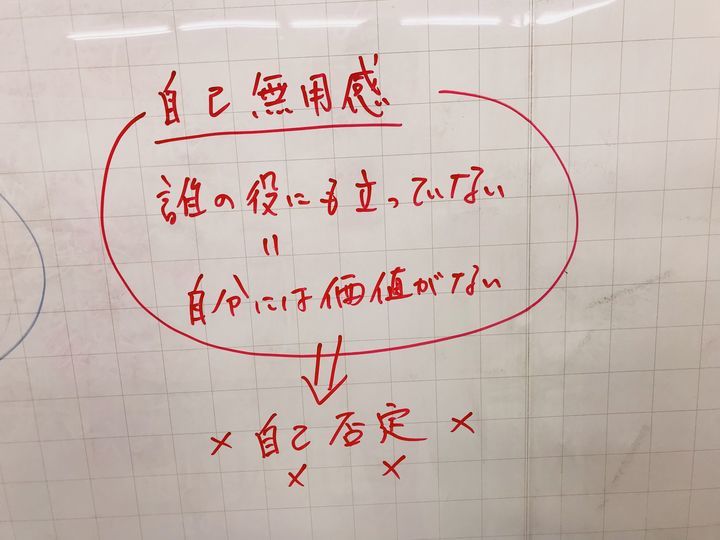 自己無用感
誰の役にも立っていない
=
自分には価値がない
⇓
× 自己否定 ×
× ×